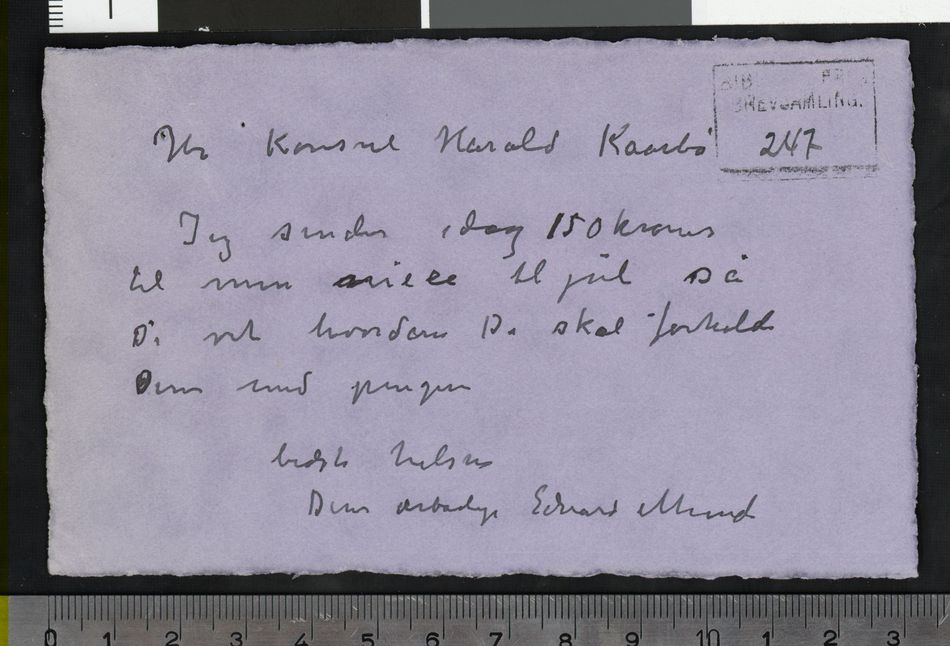 Hr Konsul Harald Kaarbø
BREVSAMLING.
247
Jeg sender idag 150 kroner
til min niece til jul så
De vet hvordan De skal forholde
Dem med pengene
bedste hilsen
Deres ærbødige Edvard Munch
0 1 2 3 4 5 6 7 8 9 10 1 2 3